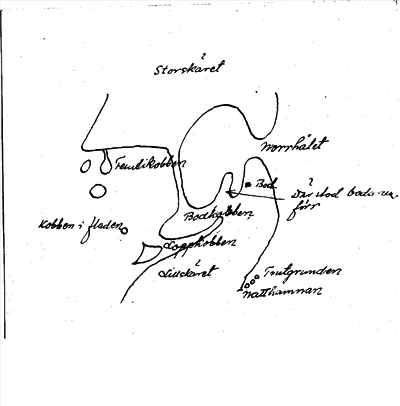 ?
Storskäret
Norrhålet
Fendikobben
Bod
?
Där stod bodarna
förr
Bodkobben
Kobben i fladen
Loppkobben
?
Lillskäret
Trutgrunden
Natthamnan